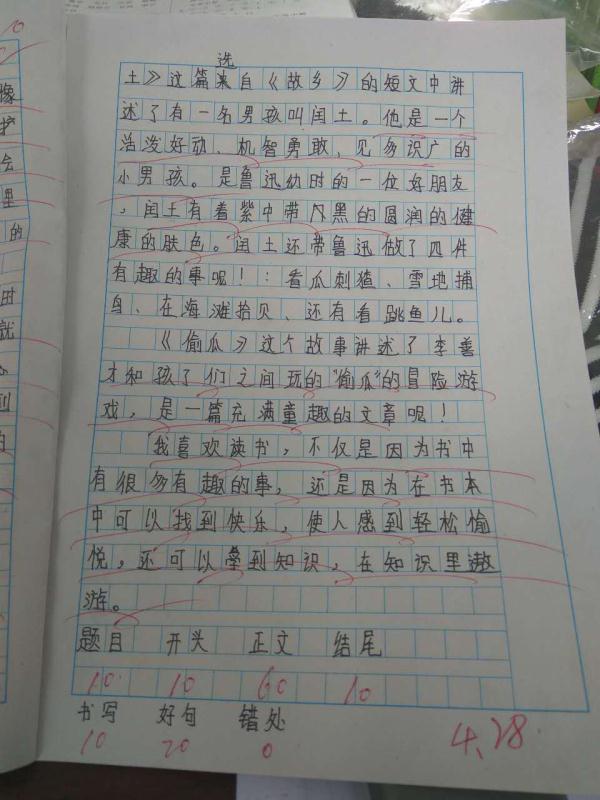 选
土》这篇来自《故乡》的短文中讲
述了有一名男孩叫闰土。他是一个
活泼好动、机智勇敢,见多识广的
小男孩。是鲁迅幼时的一位好朋友
,闰土有着紫中带黑的圆润的健
康的肤色。闰土还带鲁迅做了四件
有趣的事呢!:看瓜刺猹、雪地捕
鸟、在海滩拾贝、还有看跳鱼儿。
《偷瓜》这个故事讲述了李善
才和孩了们之间玩的“偷瓜”的冒险游
戏,是一篇充满童趣的文章呢!
我喜欢读书,不仅是因为书中
有很多有趣的事,还是因为在书本
中可以找到快乐,使人感到轻松愉
悦,还可以学到知识,在知识里遨
游。
题目 开头 正文 结尾
10 10 60 10
书写 好句 错处
10 20 0
4.28
10
像
护
会
里
的
由
就
到
的